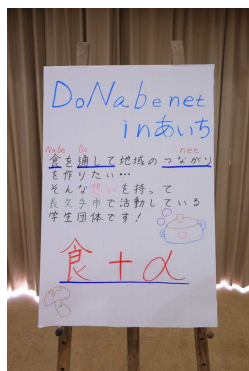 DoNabe net
inあいち
Nabe Do net
食を通して地域のつながり
を作りたい…
そんな想いを持って
長久手市で活動している
学生団体です!
食+α